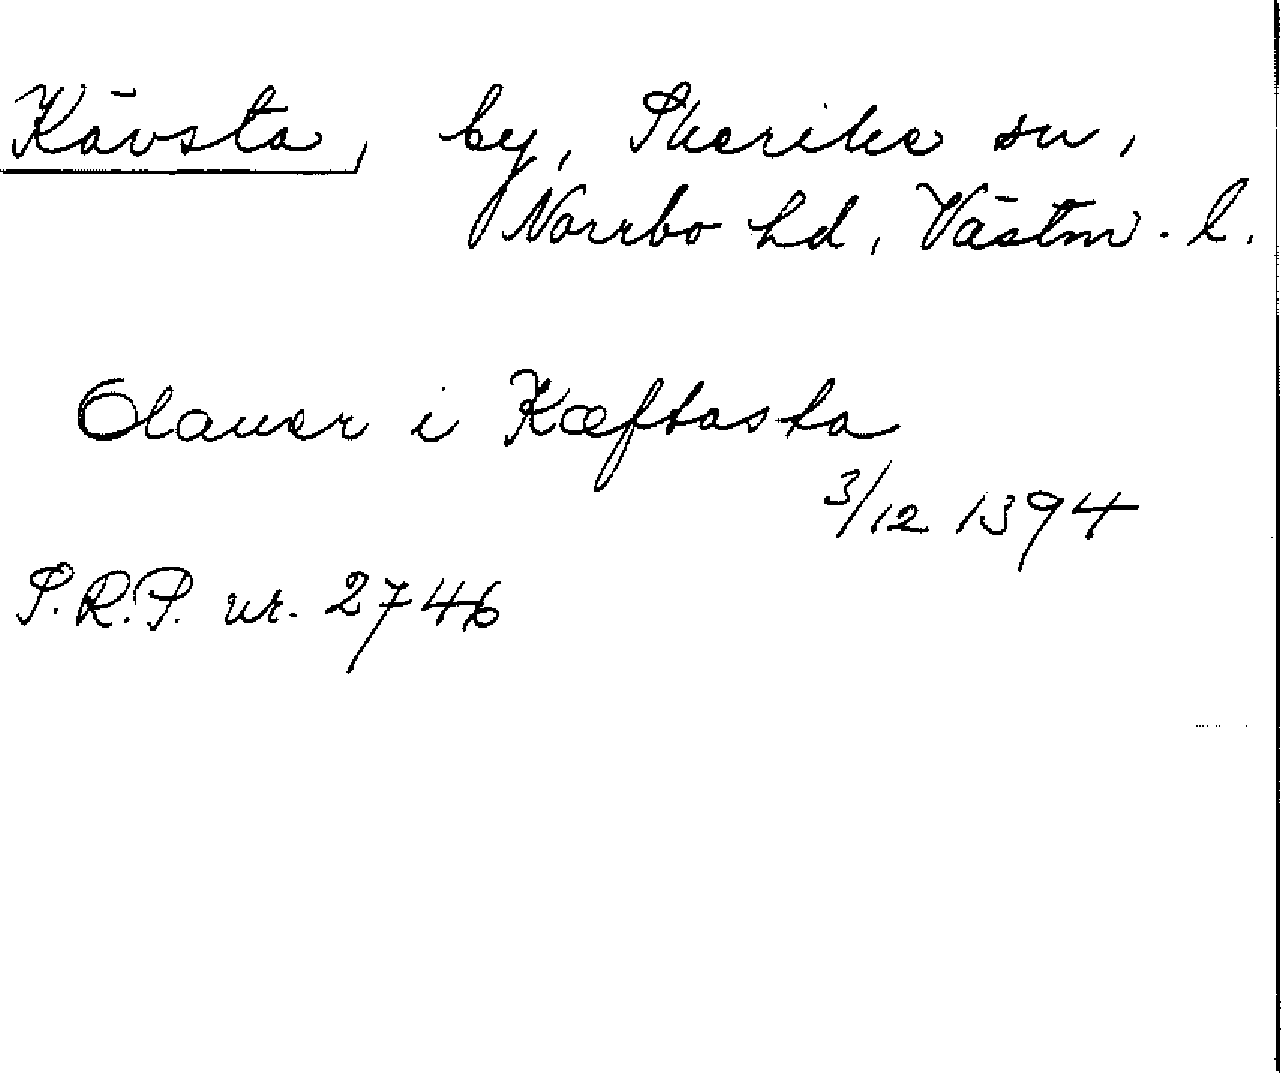 Kävsta, by, Skerike sn,
Norrbo hd, Västm. l.
Olauer i Kæftasta
3/12 1394
S.R.P. nr. 2746